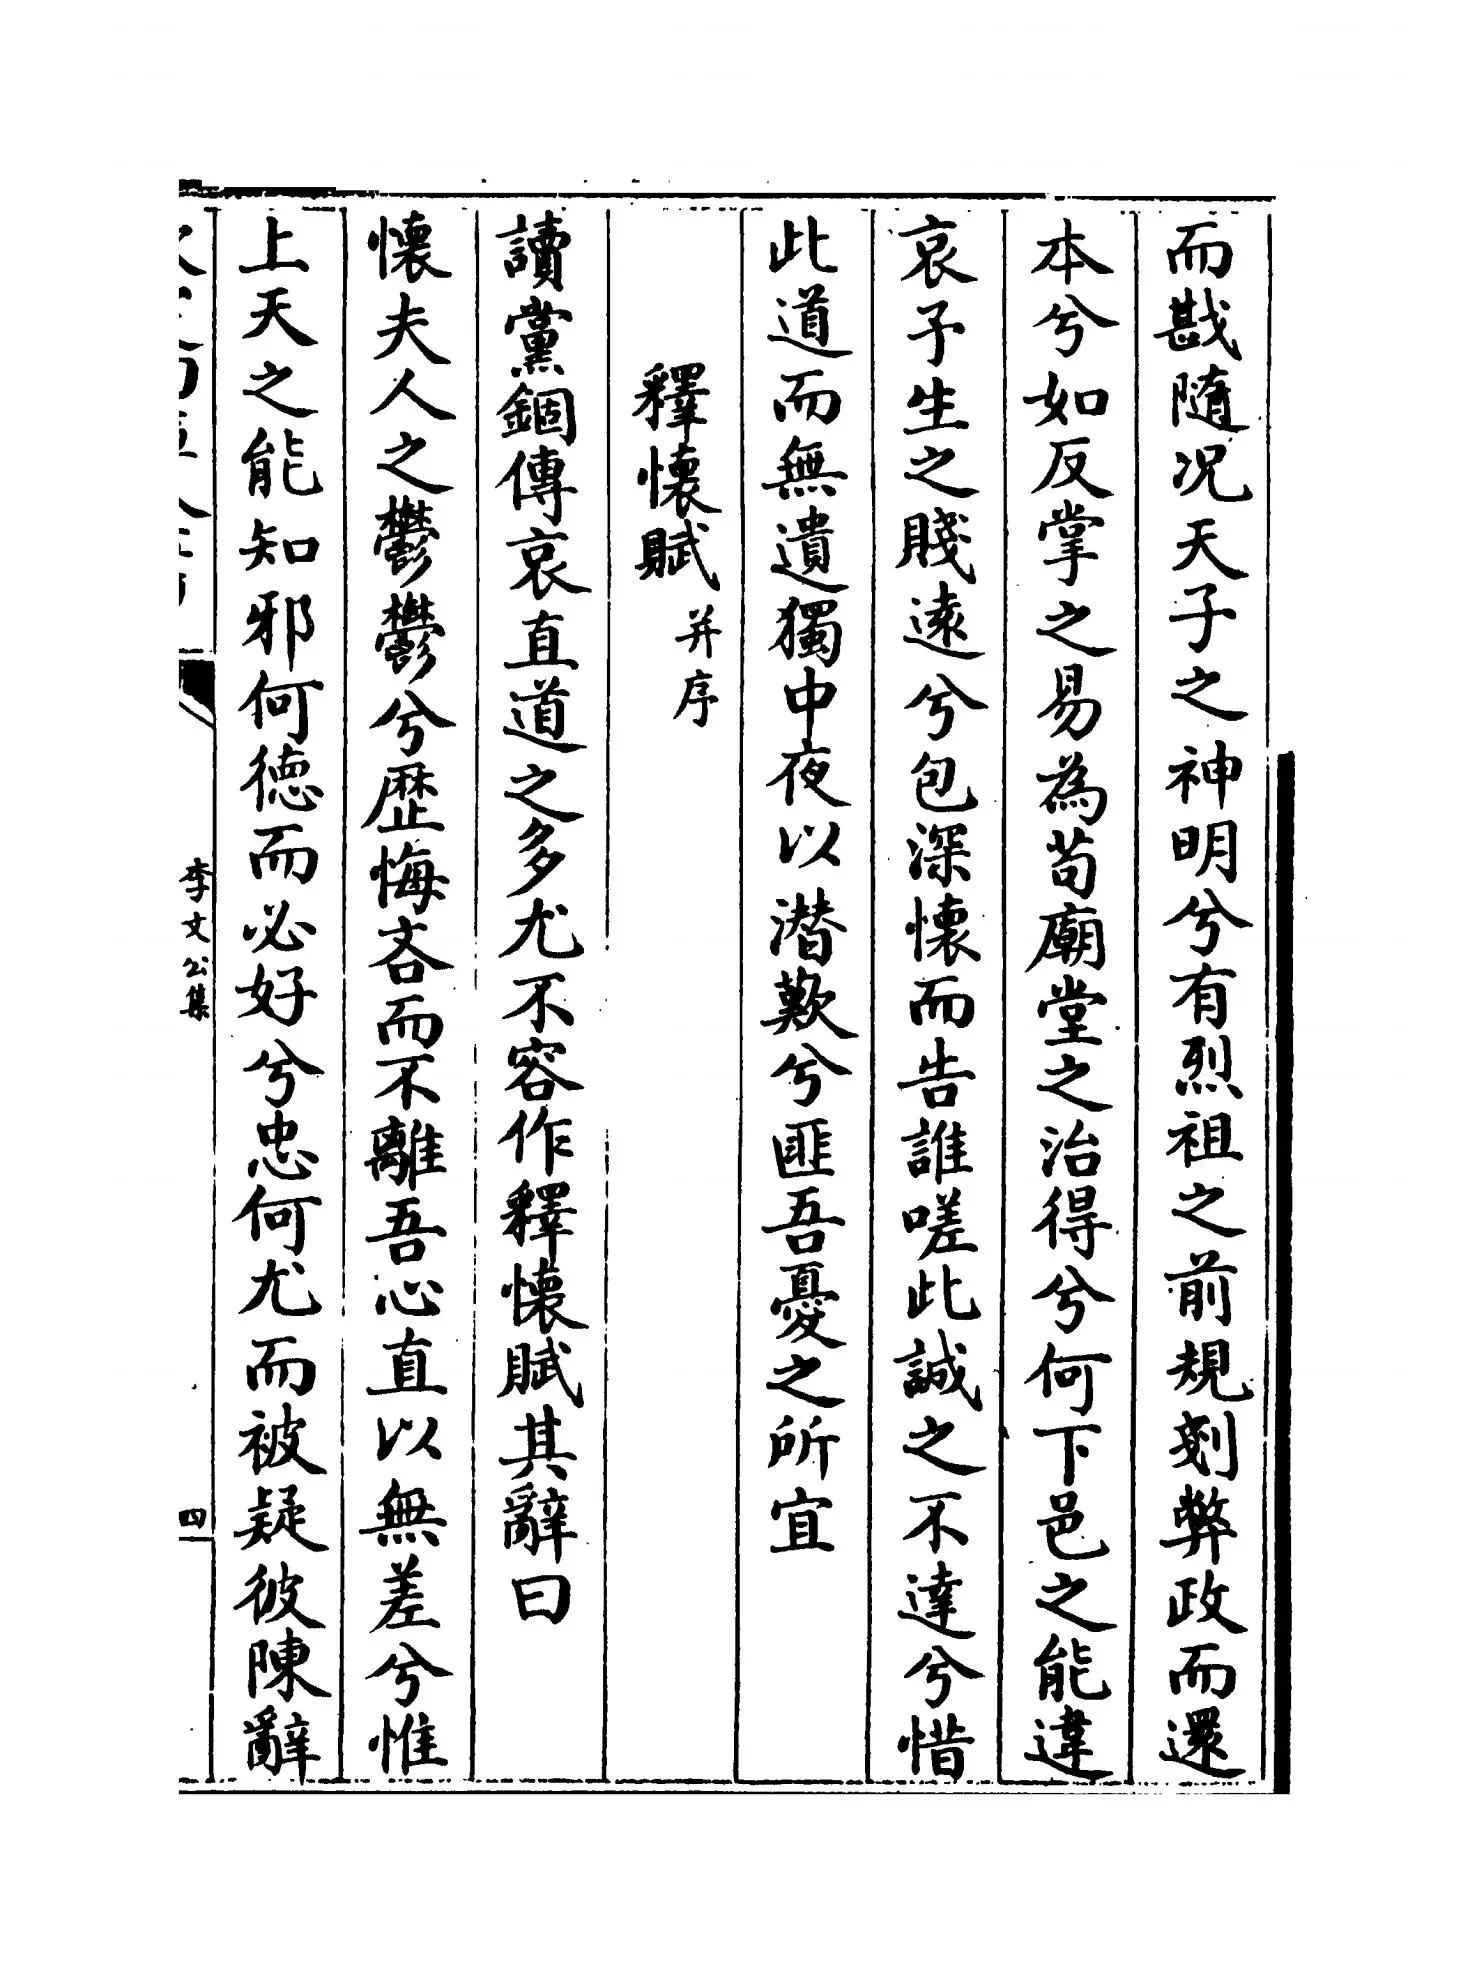 而戡隨况天子之神明兮有烈祖之前規剗弊政而還
本兮如反掌之易為苟廟堂之治得兮何下邑之能違
哀予生之賤遠兮包深懷而告誰嗟此誠之不達兮惜
此道而無遺獨中夜以潛歎兮匪吾憂之所宜
釋懷賦并序
讀黨錮傳哀直道之多尤不容作釋懷賦其辭曰
懷夫人之鬱鬱兮歴悔吝而不離吾心直以無差兮惟
上天之能知邪何德而必好兮忠何尤而被疑彼陳辭
李文公集
四